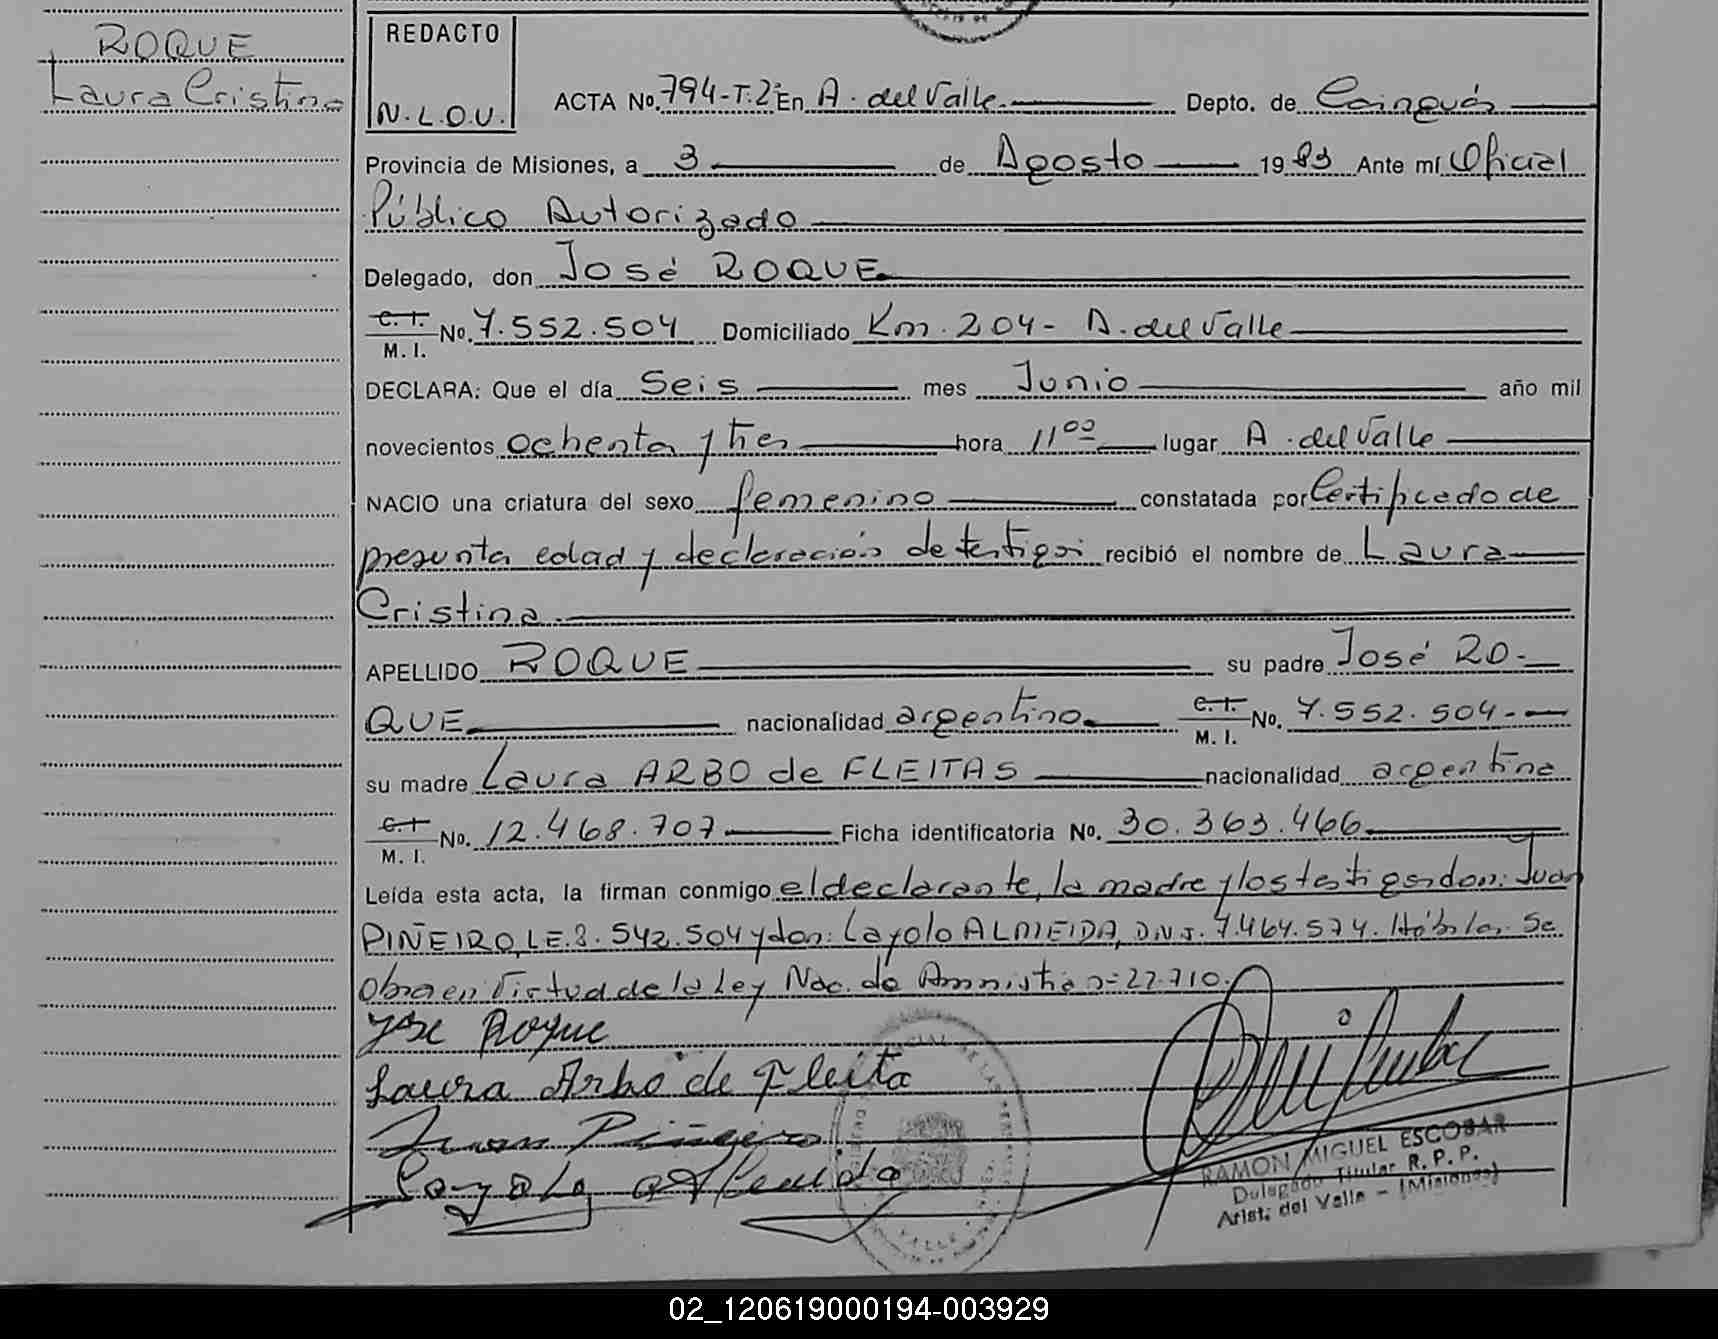 ROQUE
Laura Cristina
REDACTO
N.L.O.U.
ACTA No. 794-T.2º En A. del Valle Depto. de Cainguás
Provincia de Misiones, a 3 de Agosto 1983 Ante mí Oficial
Público Autorizado
Delegado, don José ROQUE
C. I. M. I. No. 7.552.504 Domiciliado Km. 204- A. del Valle
DECLARA: Que el día Seis mes Junio año mil
novecientos ochenta y tres hora 11 00 lugar A. del Valle
NACIO una criatura del sexo femenino constatada por Certificado de
presunta edad y declaración de testigos recibió el nombre de Laura
Cristina
APELLIDO ROQUE su padre José RO-
QUE nacionalidad argentino C. I. M. I. No. 7.552.504.-
su madre Laura ARBO de FLEITAS nacionalidad argentina
C. I. M. I. No. 12.468.707 Ficha identificatoria No. 30.363.466
Leída esta acta, la firman conmigo el declarante, la madre y los testigos don: Juan
PIÑEIRO, L.E. 8.542.504 y don: Layolo ALMEIDA, D.N.I. 7.464.574. Hábiles. Se
obra en Virtud de la Ley Nac. de Amnistia n= 22.710.
José Roque
Laura Arbo de Fleita
Juan Piñeiro
Layolo Almeida
RAMON MIGUEL ESCOBAR
Delegado Titular R. P. P.
Arist. del Valle - (Misiones)
02_120619000194-003929